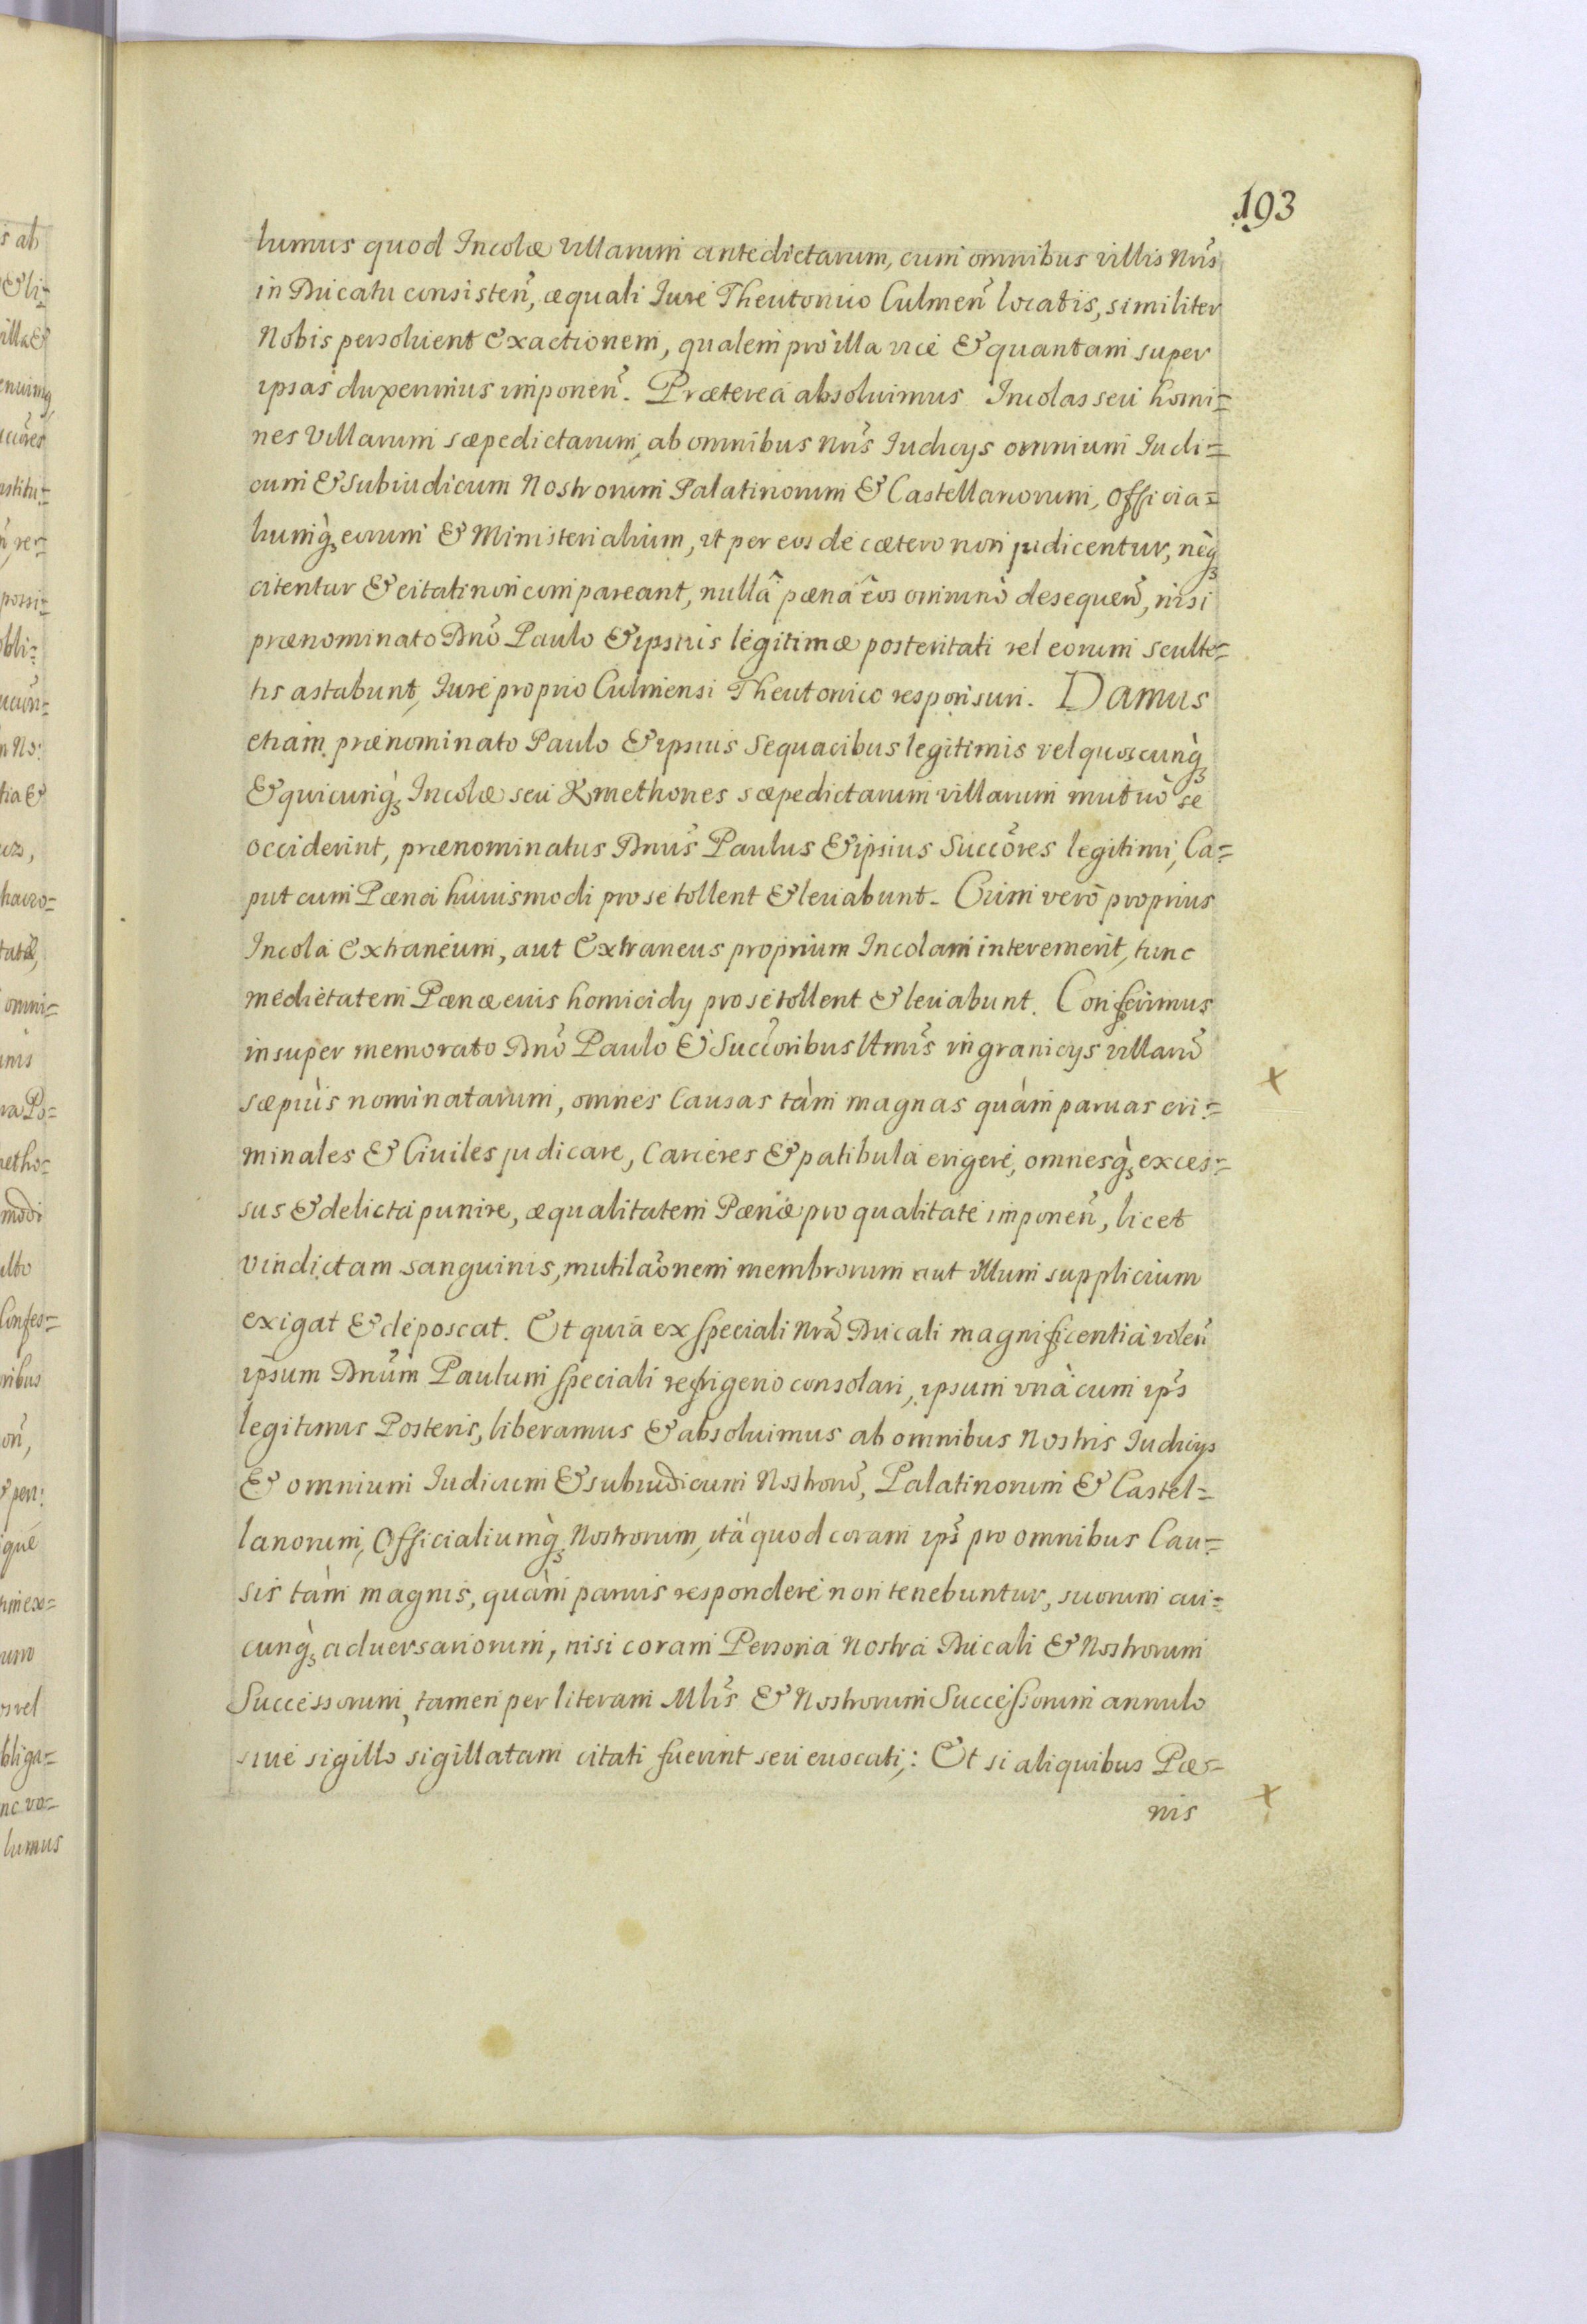 193
lumus quod Incolæ villarum antedictarum, cum omnibus villis Nr̃is
in Ducatu consisteñ, æquali Iure Theutonico Culmeñ locatis, similiter
Nobis persoluent exactionem, qualem pro illa vice & quantam super
ipsas duxerimus imponeñ. Præterea absoluimus Incolas seu homi=
nes Villarum sæpedictarum, ab omnibus Nr̃is Iudicys omnium Iudi=
cum & Subiudicum Nostrorum Palatinorum & Castellanorum, Officia=
liumq̀ȝ eorum & Ministerialium, vt per eos de cætero non judicentur, neq̀ȝ
citentur & citati non compareant, nullâ pœnâ eos omninò desequeñ, nisi
prænominato Dnõ Paulo & ipsius legitimæ posteritati vel eorum sculte=
tis astabunt, Iure proprio Culmensi Theutonico responsuri. Damus
etiam prænominato Paulo & ipsius sequacibus legitimis vel quoscunq̀ȝ
& quicunq̀ȝ Incolæ seu Kmethones sæpedictarum villarum mutuò se
occiderint, prænominatus Dnũs Paulus & ipsius Succõres legitimi, Ca=
put cum Pœna huiusmodi pro se tollent & leuabunt. Cùm verò proprius
Incola Extraneum, aut Extraneus proprium Incolam interemerit, tunc
medietatem Pœnæ eius homicidy pro se tollent & leuabunt. Conferimus
insuper memorato Dnõ Paulo & Succõribus ltm̃is in granicys villarũ
sæpiùs nominatarum, omnes Causas tàm magnas quàm paruas cri=
minales & Ciuiles judicare, Carceres & patibula erigere, omnesq̀ȝ exces=
sus & delicta punire, æqualitatem Pœnæ pro qualitate imponeñ, licet
vindictam sanguinis, mutilãonem membrorum aut vllum supplicium
exigat & deposcat. Et quia ex speciali Nrã Ducali magnificentia voleñ
ipsum Dnũm Paulum speciali refrigerio consolari, ipsum vnà cum ips̃
legitimis Posteris, liberamus & absoluimus ab omnibus Nostris Iudicys
& omnium Iudicum & subiudicum Nostrorũ, Palatinorum & Castel=
lanorum, Officialiumq̀ȝ Nostrorum, ità quod coram ips̃ pro omnibus Cau=
sis tàm magnis, quàm paruis respondere non tenebuntur, suorum cui=
cunq̀ȝ aduersariorum, nisi coram Persona Nostra Ducali & Nostrorum
Successorum, tamen per literam Mlr̃s & Nostrorum Successorum annulo
siue sigillo sigillatam citati fuerint seu euocati;: Et si aliquibus Pœ=
nis